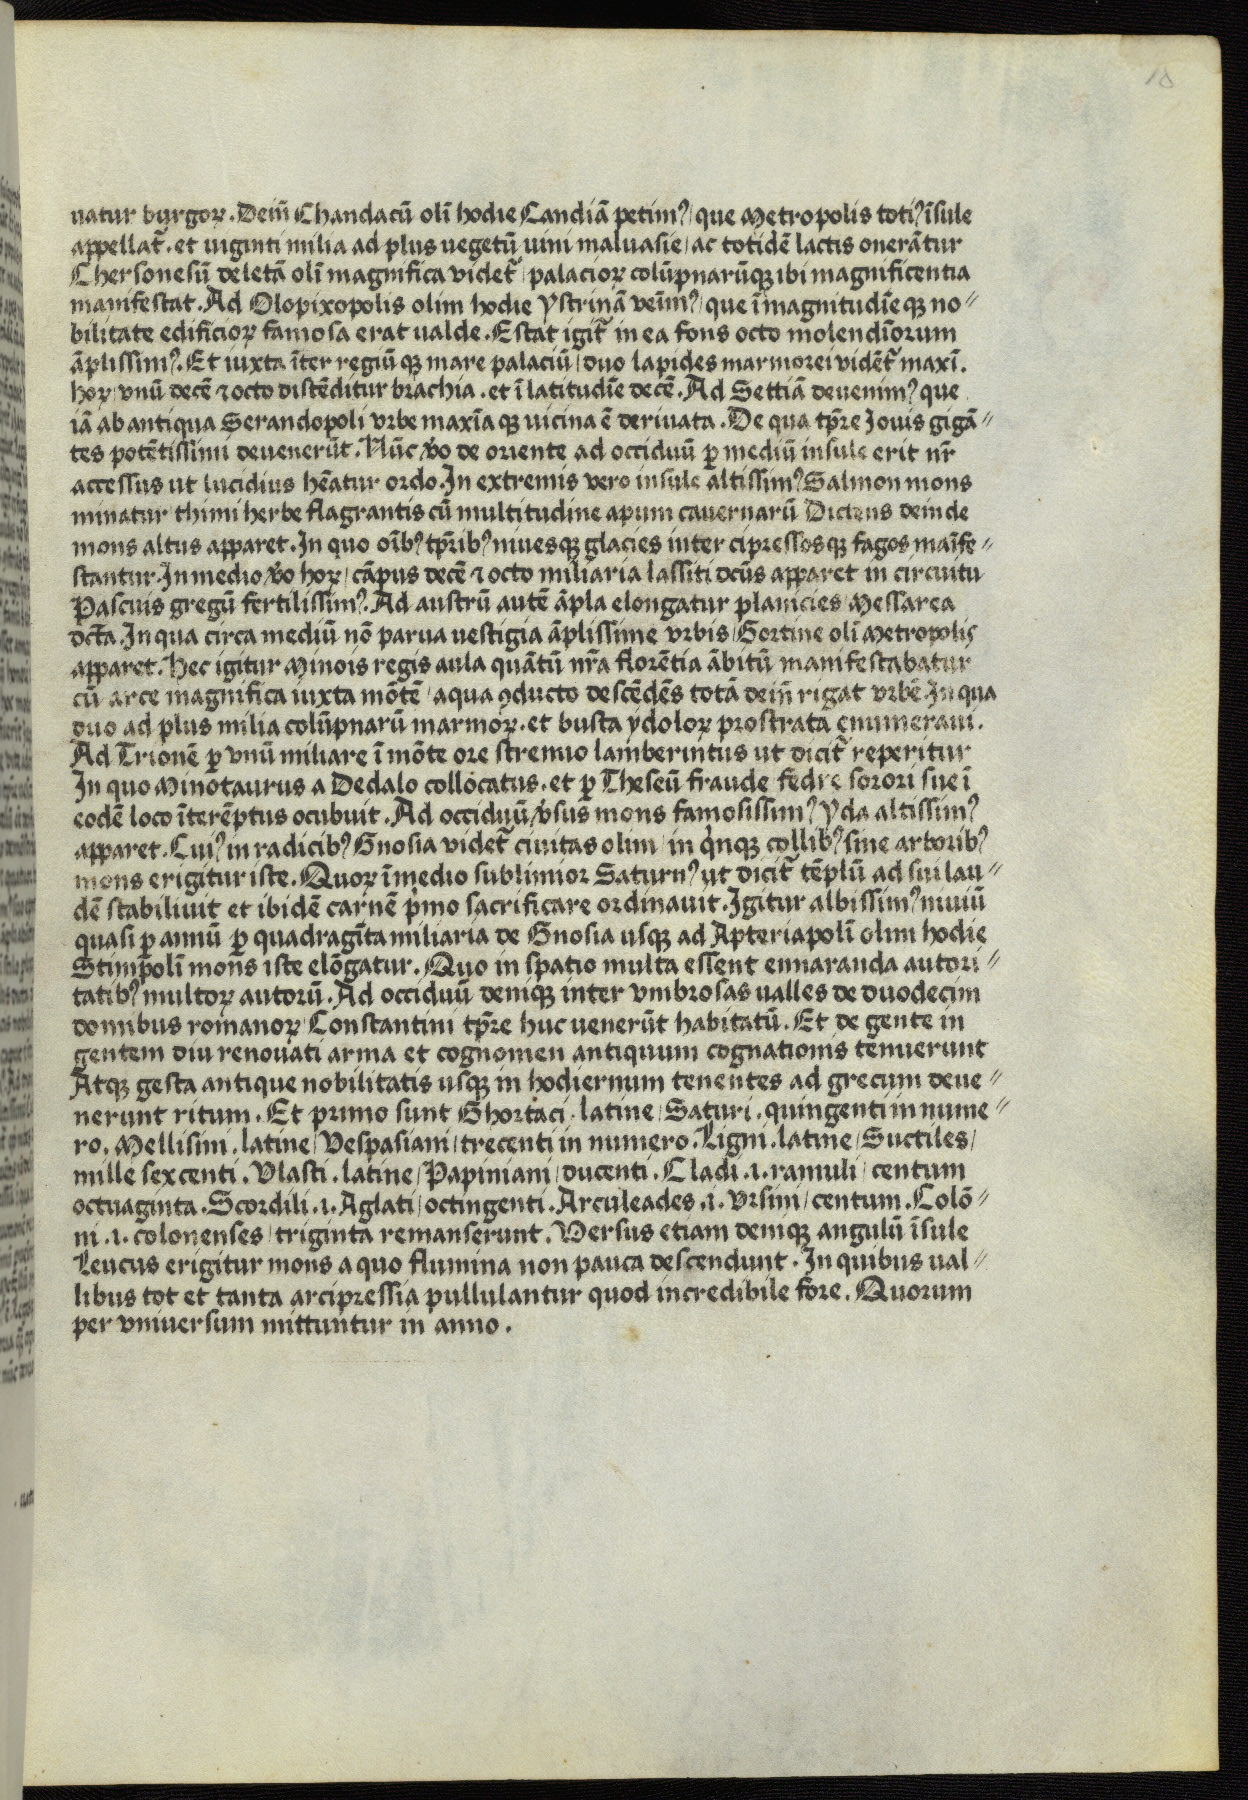 10
natur burgoꝝ. Dein̄ Chandacū olī hodie Candiā petimꝰ/ que Metropolis totiꝰ īsule
appellat᷑. et uiginti milia ad plus uegetū uini maluasie/ ac totidē lactis onerātur
Chersonesū deletā olī magnifica videt᷑/ palacioꝝ colūpnarūqꝫ ibi magnificentia
manifestat. Ad Olopixopolis olim hodie ystrinā venīꝰ/ que ī magnitudīe qꝫ no⸗
bilitate edificioꝝ famosa erat ualde. Estat igit᷑ in ea fons octo molendīorum
āplissimꝰ. Et iuxta īter regiū qꝫ mare palaciū/ duo lapides marmorei vidēt᷑ maxī.
hoꝝ/ vnū decē ⁊ octo distēditur brachia. et ī latitudīe decē. Ad Settiā deuenimꝰ que
iā ab antiqua Serandopoli vrbe maxīa qꝫ uicina ē deriuata. De qua tꝑre Iouis gigā⸗
tes potētissimi deuenerūt. Nūc v̊o de oriente ad occiduū ꝑ mediū insule erit nr̄
accessus ut lucidius hēatur ordo. In extremis vero insule altissimꝰ Salmon mons
minatur thimi herbe flagrantis cū multitudine apum cauernarū Dicteus deinde
mons altus apparet. In quo oībꝰ tꝑribꝰ niuesqꝫ glacies inter cipressosqꝫ fagos maīfe⸗
stantur. In medio v̊o hoꝝ/ cāpus decē ⁊ octo miliaria lassiti dcūs apparet in circuitu
Pascuis gregū fertilissimꝰ. Ad austrū autē āpla elongatur planicies/ Messarea
dcta. In qua circa mediū nō parua uestigia āplissime vrbis/ Gortine olī Metropolis
apparet. Hec igitur Minois regis aula quātū nr̄a florētia ābitū manifestabatur
cū arce magnifica iuxta mōtē/ aqua ꝯducto descēdēs totā dein̄ rigat vrbē In qua
duo ad plus milia colūpnarū marmoꝝ. et busta ydoloꝝ prostrata enumeraui.
Ad Trionē ꝑ vnū miliare ī mōte ore stremio lamberintus ut dicit᷑ reperitur
In quo Minotaurus a Dedalo collocatus. et ꝑ Theseū fraude fedre sorori sue ī
eodē loco īterēptus ocubuit. Ad occiduū v̊sus mons famosissimꝰ yda altissimꝰ
apparet. Cuiꝰ in radicibꝰ Gnosia videt᷑ ciuitas olim/ in qⁱnqꝫ collibꝰ sine arboribꝰ
mons erigitur iste. Quoꝝ ī medio sublimior Saturnꝰ ut dicit᷑ tēplū ad sui lau⸗
dē stabiliuit et ibidē carnē pⁱmo sacrificare ordinauit. Igitur albissimꝰ niuiū
quasi ꝑ annū ꝑ quadragīta miliaria de Gnosia usqꝫ ad Apteriapolī olim hodie
Stimpolī mons iste elōgatur. Quo in spatio multa essent ennaranda autori⸗
tatibꝰ multoꝝ autorū. Ad occiduū deniqꝫ inter vmbrosas ualles de duodecim
domibus romanoꝝ Constantini tꝑre huc uenerūt habitatū. Et de gente in
gentem diu renouati arma et cognomen antiquum cognationis tenuerunt
Atqꝫ gesta antique nobilitatis usqꝫ in hodiernum tenentes ad grecum deue⸗
nerunt ritum. Et primo sunt Ghortaci. latine/ Saturi. quingenti in nume⸗
ro. Mellisini. latine/ Vespasiani/ trecenti in numero. Ligni. latine/ Suctiles/
mille sexcenti. Vlasti. latine/ Papiniani/ ducenti. Cladi .i. ramuli/ centum
octuaginta. Scordili .i. Aglati/ octingenti. Arculeades .i. vrsini/ centum. Colō⸗
ni .i. colonenses/ triginta remanserunt. Versus etiam deniqꝫ angulū īsule
Leucus erigitur mons a quo flumina non pauca descendunt. In quibus ual⸗
libus tot et tanta arcipressia pullulantur quod incredibile fore. Quorum
per vniuersum mittuntur in anno.